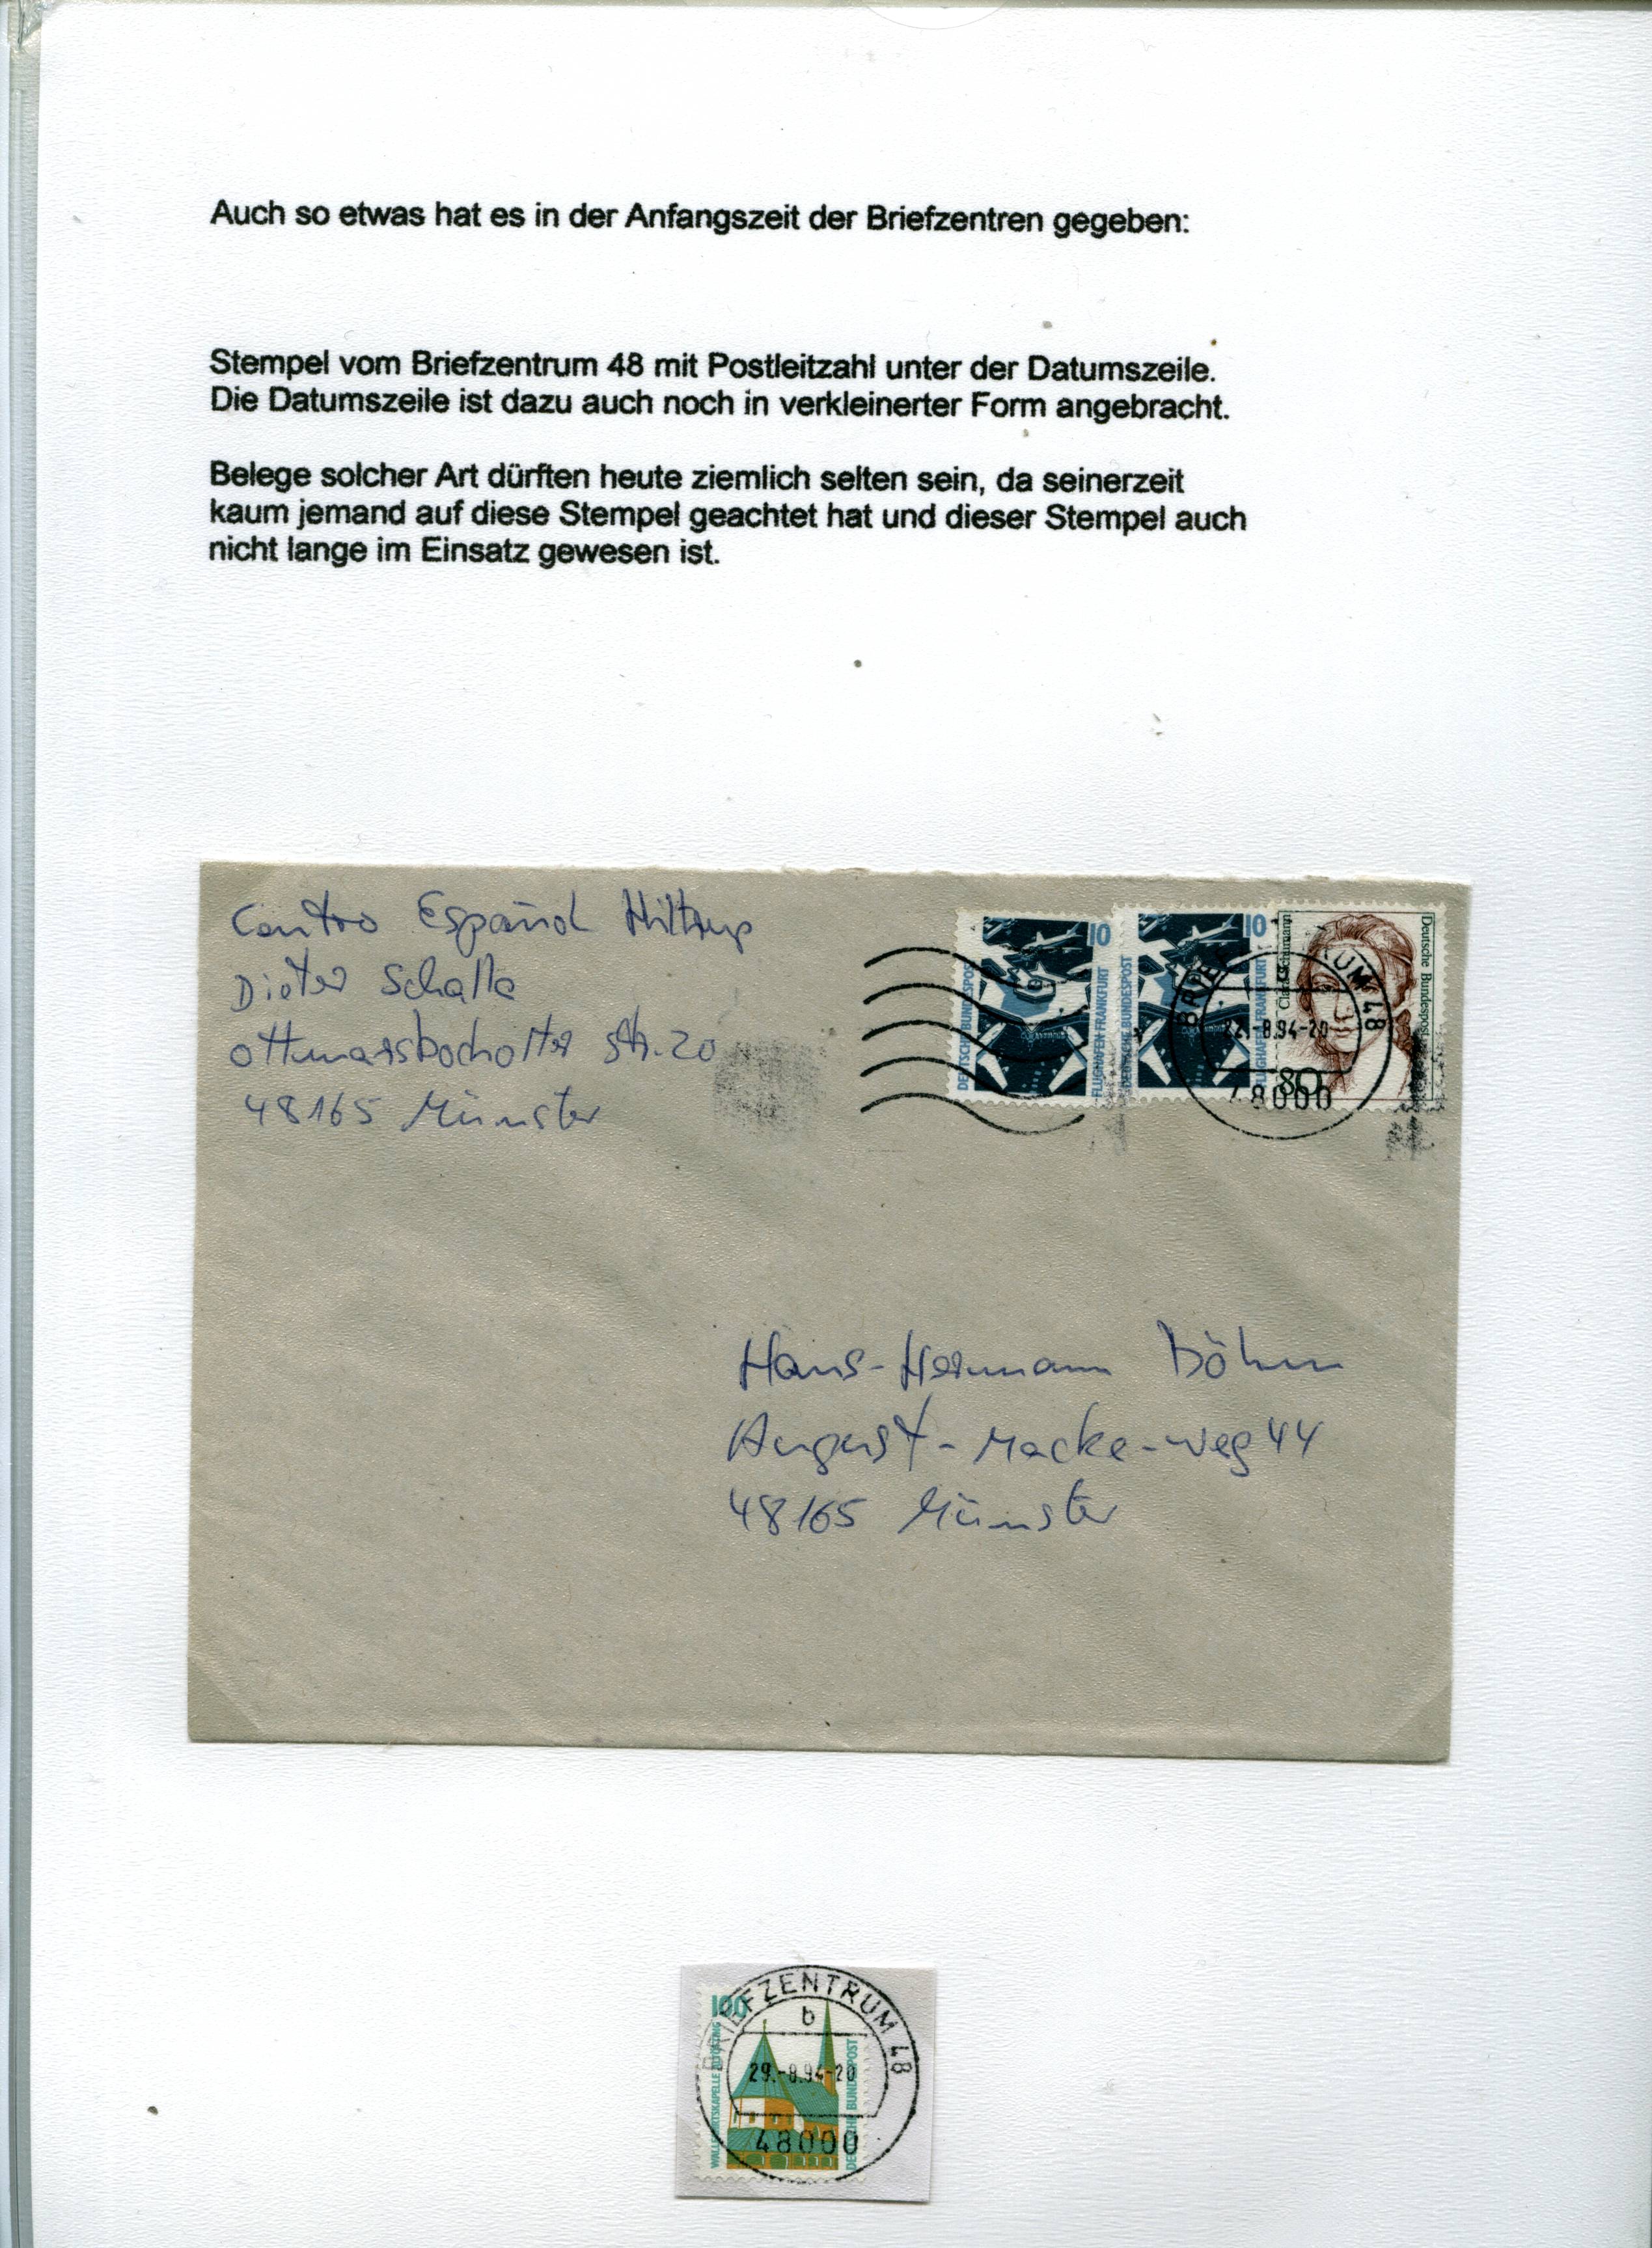 Auch so etwas hat es in der Anfangszeit der Briefzentren gegeben:
Stempel vom Briefzentrum 48 mit Postleitzahl unter der Datumszeile.
Die Datumszeile ist dazu auch noch in verkleinerter Form angebracht.
Belege solcher Art dürften heute ziemlich selten sein, da seinerzeit
kaum jemand auf diese Stempel geachtet hat und dieser Stempel auch
nicht lange im Einsatz gewesen ist.
Centro Español Hiltrup
Dieter Schalle
Ottmarsbocholter Str. 20
48165 Münster
10
DEUTSCHE BUNDESPOST
FLUGHAFEN FRANKFURT
10
DEUTSCHE BUNDESPOST
FLUGHAFEN FRANKFURT
Clara Schumann
Deutsche Bundespost
80
48
22.-8.94-20
48000
Hans-Hermann Böhm
August-Macke-Weg 44
48165 Münster
100
WALLFAHRTSKAPELLE ALTÖTTING
DEUTSCHE BUNDESPOST
BRIEFZENTRUM 48
b
29.-8.94-20
48000